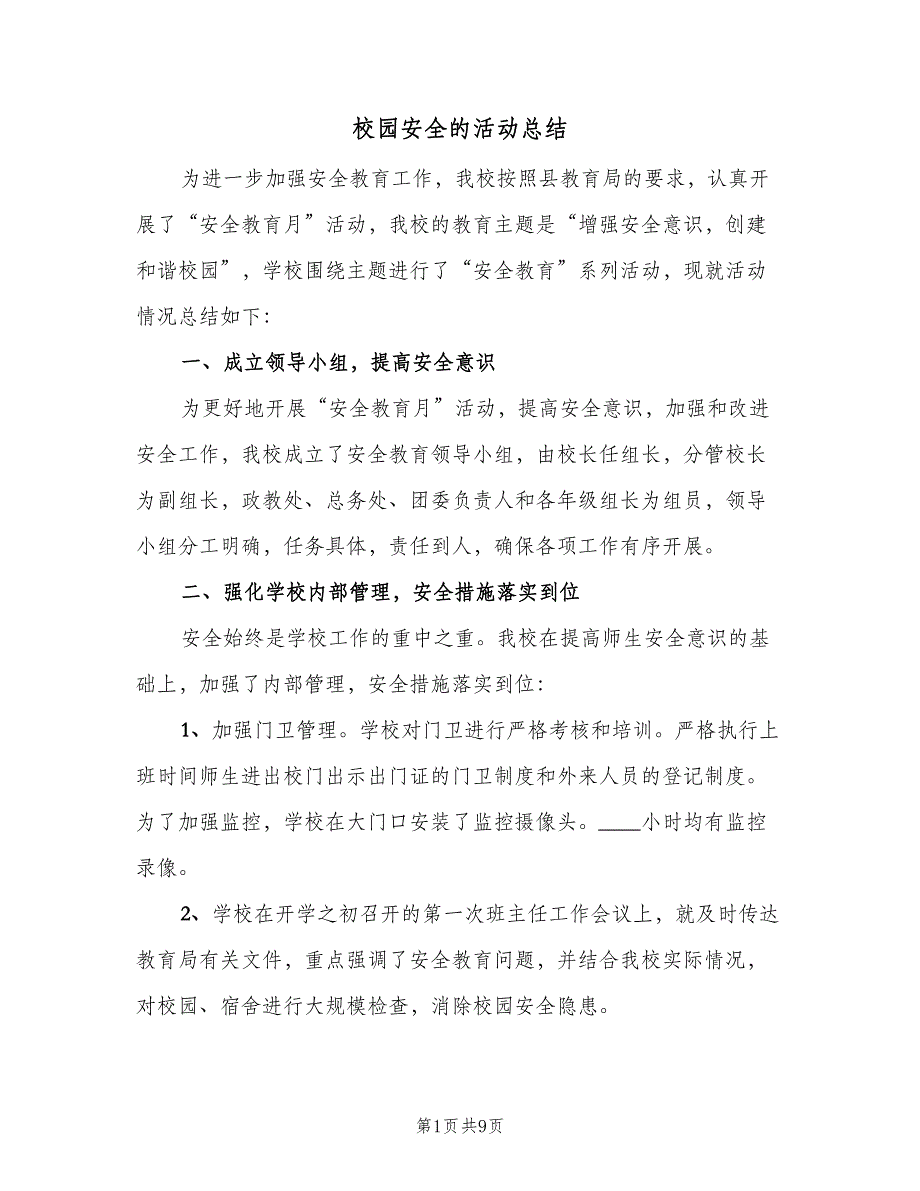 校园安全的活动总结
为进一步加强安全教育工作，我校按照县教育局的要求，认真开
展了“安全教育月”活动，我校的教育主题是“增强安全意识，创建
和谐校园”，学校围绕主题进行了“安全教育”系列活动，现就活动
情况总结如下：
一、成立领导小组，提高安全意识
为更好地开展“安全教育月”活动，提高安全意识，加强和改进
安全工作，我校成立了安全教育领导小组，由校长任组长，分管校长
为副组长，政教处、总务处、团委负责人和各年级组长为组员，领导
小组分工明确，任务具体，责任到人，确保各项工作有序开展。
二、强化学校内部管理，安全措施落实到位
安全始终是学校工作的重中之重。我校在提高师生安全意识的基
础上，加强了内部管理，安全措施落实到位：
1、加强门卫管理。学校对门卫进行严格考核和培训。严格执行上
班时间师生进出校门出示出门证的门卫制度和外来人员的登记制度。
为了加强监控，学校在大门口安装了监控摄像头。____小时均有监控
录像。
2、学校在开学之初召开的第一次班主任工作会议上，就及时传达
教育局有关文件，重点强调了安全教育问题，并结合我校实际情况，
对校园、宿舍进行大规模检查，消除校园安全隐患。
第1页共9页